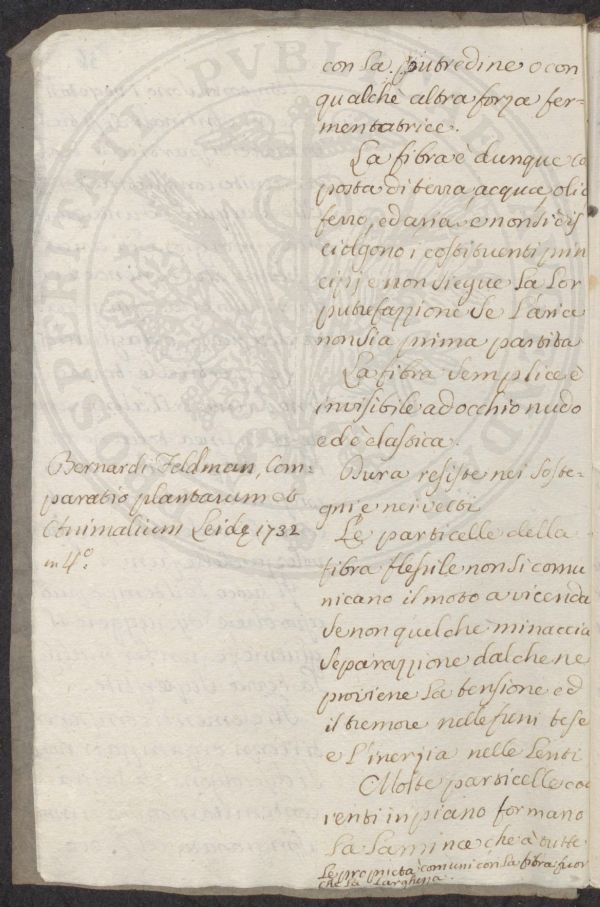 con la putredine o con
qualche altra forza fer-
mentatrice.
La fibra è dunque co
posta di terra, acqua, olio
ferro, ed aria, e non si dis
ciolgono i costituenti prin
cipj e non siegue la lor
putrefazzione se l'aria
non sia prima partita
La fibra semplice è
invisibile ad occhio nudo
ed è elastica.
Dura resiste nei soste-
gni e nei velti
Le particelle della
fibra flessile non si comu
nicano il moto a vicenda
se non quelche minaccia
separazzione dalche ne
proviene la tensione ed
il tremore nelle funi tese
e l'inerzia nelle lenti
Molte particelle coe
renti in piano formano
la lamina che à tutte
le proprietà comuni con la fibra fuor
che la larghezza.
Bernardi Feldman, Com=
paratio plantarum et
Animalium Leidę 1732
in 4º.
PROSPERITATI PUBLICAE